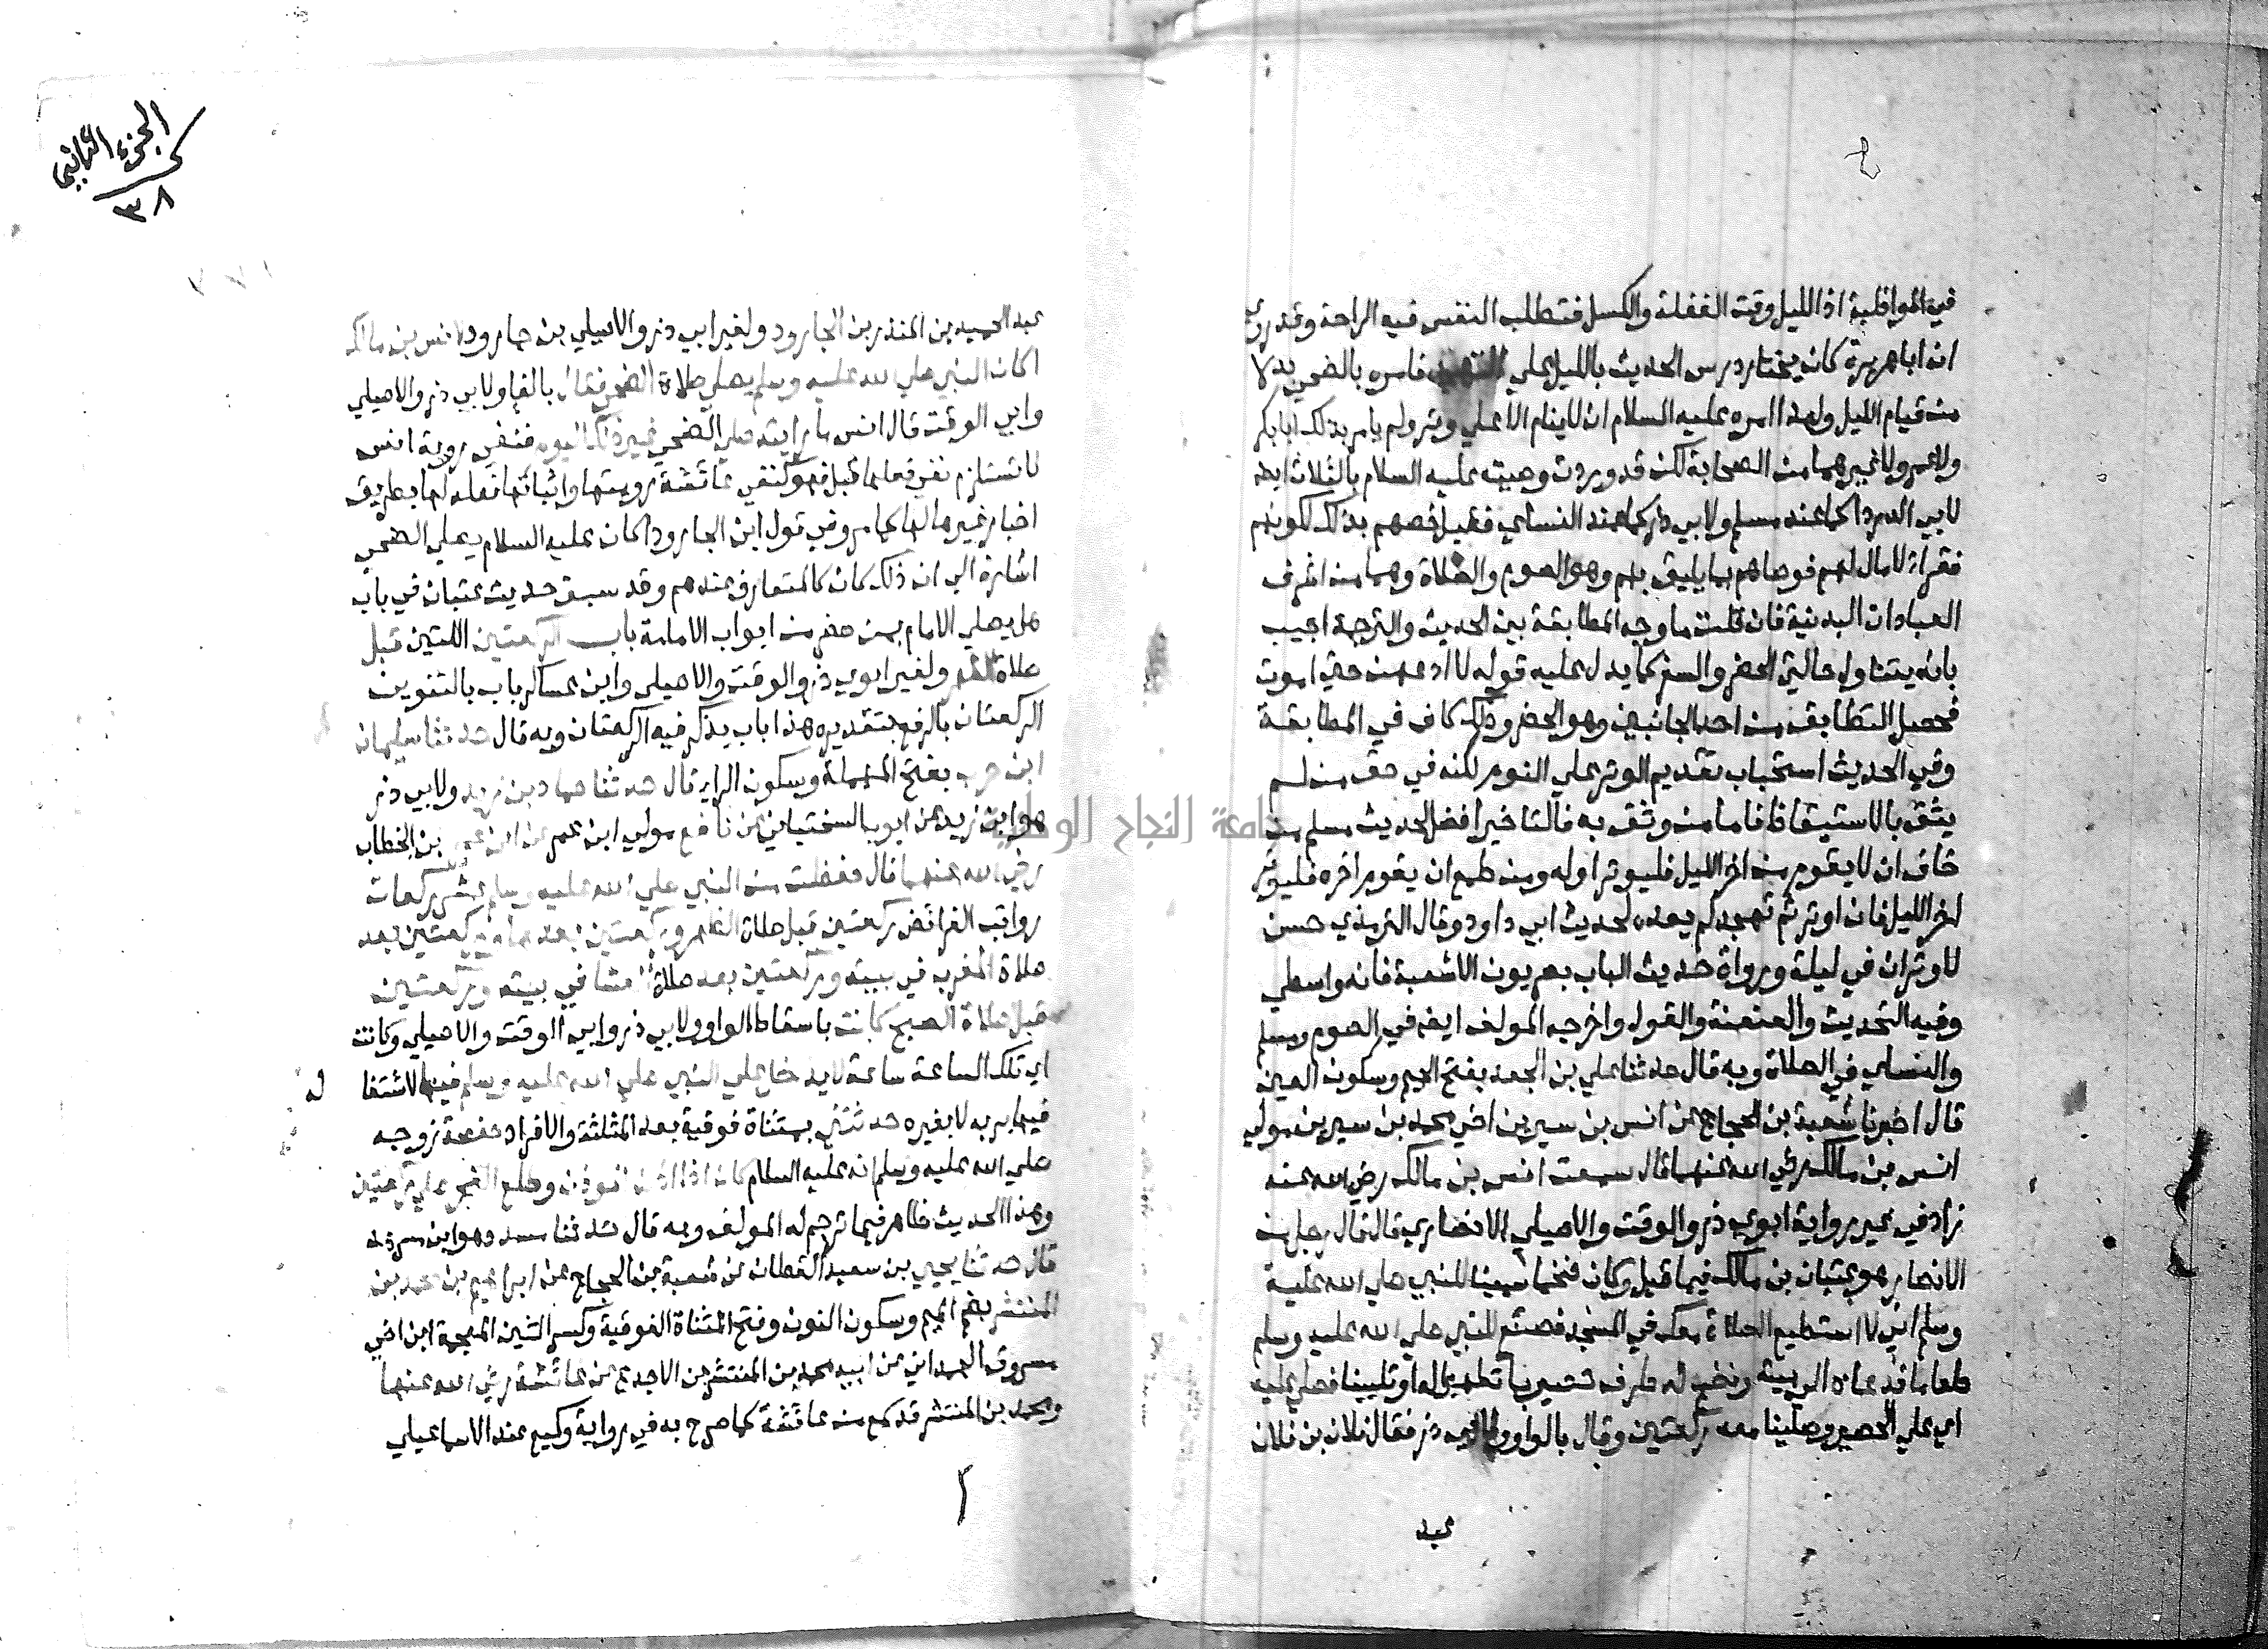 في المواظبة اذ الليل وقت الغفلة والكسل فتطلب النفس فيه الراحة وقد روي
ان ابا هريرة كان يختار درس الحديث بالليل علي التهجد فامره بالضحي بدلا
من قيام الليل ولهذا امره عليه السلام ان لا ينام الا علي وتر ولم يامر بذلك ابا بكر
ولا عمر ولا غيرهما من الصحابة لكن قد وردت وصيته عليه السلام بالثلاث ايضا
لابي الدردا كما عند مسلم ولابي ذر كما عند النسائي فقيل خصهم بذلك لكونهم
فقراء لا مال لهم فوصاهم بما يليق بهم وهو الصوم والصلاة وهما من اشرف
العبادات البدنية فان قلت ما وجه المطابقة بين الحديث والترجمة اجيب
بانه يتناول حالتي الحضر والسفر كما يدل عليه قوله لا ادعهن حتي اموت
فحصل التطابق من احد الجانبين وهو الحضر وذلك كاف في المطابقة
وفي الحديث استحباب تقديم الوتر علي النوم لكنه في حق من لم
يثق بالاستيقاظ فاما من وثق به فالتاخير افضل لحديث مسلم من
خاف ان لا يقوم من اخر الليل فليوتر اوله ومن طمع ان يقوم اخره فليوتر
اخر الليل فان اوتر ثم تهجد لم يعده لحديث ابي داود وقال الترمذي حسن
لا وتران في ليلة ورواة حديث الباب بصريون الا شعبة فانه واسطي
وفيه التحديث والعنعنة والقول واخرجه المولف ايضا في الصوم ومسلم
والنسائي في الصلاة وبه قال حدثنا علي بن الجعد بفتح الجيم وسكون العين
قال اخبرنا شعبة بن الحجاج عن انس بن سيرين اخي محمد بن سيرين مولي
انس بن مالك رضي الله عنهما قال سمعت انس بن مالك رضي الله عنه
زاد في غير رواية ابوي ذر والوقت والاصيلي الانصاري قال قال رجل من
الانصار هو عتبان بن مالك فيما قيل وكان ضخما سمينا للنبي صلي الله عليه
وسلم اني لا استطيع الصلاة معك في المسجد فصنع للنبي صلي الله عليه وسلم
طعاما فدعاه الي بيته ونضح له طرف حصير بما تطهيرا له او تليينا فصلي عليه
اي علي الحصير وصلينا معه ركعتين وقال بالواو ولابي ذر فقال فلان بن فلان
عبد
الجزء الثاني
٣٨
عبد الحميد بن المنذر بن الجارود ولغير ابي ذر والاصيلي بن جارود لانس بن مالك
اكان النبي صلي الله عليه وسلم يصلي صلاة الضحي فقال بالفا ولابي ذر والاصيلي
وابي الوقت قال انس ما رايته صلي الضحي غير ذلك اليوم فنفي روية انس
لا تستلزم نفي فعلها قبل فهو كنفي عائشة رويتها واثباتها فعله لها بطريق
اخبار غيرها لها كما مر وفي قول ابن الجارود اكان عليه السلام يصلي الضحي
اشارة الي ان ذلك كان كالمتعارف عندهم وقد سبق حديث عتبان في باب
هل يصلي الامام بمن حضر من ابواب الامامة باب الركعتين اللتين قبل
صلاة الظهر ولغير ابوي ذر والوقت والاصيلي وابن عساكر باب بالتنوين
الركعتان بالرفع بتقدير هذا باب يذكر فيه الركعتان وبه قال حدثنا سليمان
ابن حرب بفتح المهملة وسكون الراء قال حدثنا حماد بن زيد ولابي ذر
هو ابن زيد عن ايوب السختياني عن نافع مولي ابن عمر عن ابن عمر بن الخطاب
رضي الله عنهما قال حفظت من النبي صلي الله عليه وسلم عشر ركعات
رواتب الفرائض ركعتين قبل صلاة الظهر وركعتين بعدها وركعتين بعد
صلاة المغرب في بيته وركعتين بعد صلاة العشا في بيته وركعتين
قبل صلاة الصبح كانت باسقاط الواو ولابي ذر وابي الوقت والاصيلي وكانت
اي تلك الساعة ساعة لا يدخل علي النبي صلي الله عليه وسلم فيها لاشتغا
له
فيها بربه لا بغيره حدثتني بمثناة فوقية بعد المثلثة والافراد حفصة زوجه
صلي الله عليه وسلم انه عليه السلام كان اذا اذن الموذن وطلع الفجر صلي ركعتين
وهذا الحديث ظاهر فيما ترجم له المولف وبه قال حدثنا مسدد وهو ابن مسرهد
قال حدثنا يحيي بن سعيد القطان عن شعبة بن الحجاج عن ابراهيم بن محمد بن
المنتشر بضم الميم وسكون النون وفتح المثناة الفوقية وكسر الشين المعجمة ابن اخي
مسروق الهمداني عن ابيه محمد بن المنتشر بن الاجدع عن عائشة رضي الله عنها
ومحمد بن المنتشر قد سمع من عائشة كما صرح به في رواية وكيع عند الاسماعيلي
جامعة النجاح الوطنية